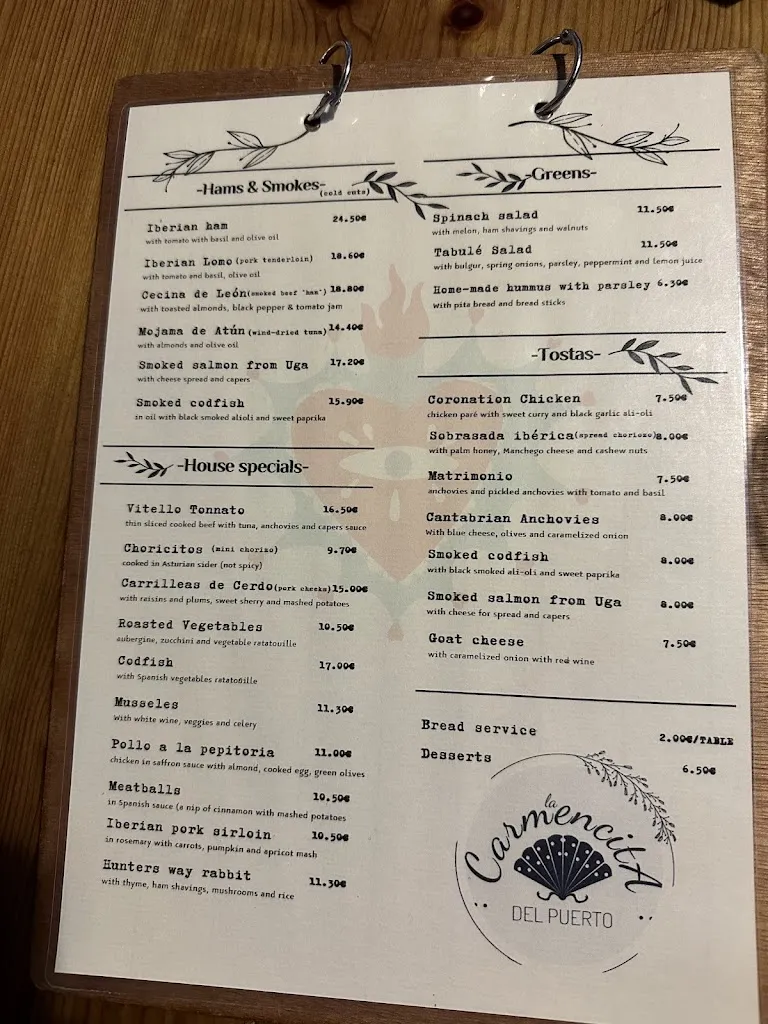 -Hams & Smokes-
(cold cuts)
Iberian ham 24.50€
with tomato with basil and olive oil
Iberian Lomo (pork tenderloin) 18.60€
with tomato and basil, olive oil
Cecina de León (smoked beef "ham") 18.80€
with toasted almonds, black pepper & tomato jam
Mojama de Atún (wind-dried tuna) 14.40€
with almonds and olive oil
Smoked salmon from Uga 17.20€
with cheese spread and capers
Smoked codfish 15.90€
in oil with black smoked alioli and sweet paprika
-House specials-
Vitello Tonnato 16.50€
thin sliced cooked beef with tuna, anchovies and capers sauce
Choricitos (mini chorizo) 9.70€
cooked in Asturian sider (not spicy)
Carrilleas de Cerdo (pork cheeks) 15.00€
with raisins and plums, sweet sherry and mashed potatoes
Roasted Vegetables 10.50€
aubergine, zucchini and vegetable ratatouille
Codfish 17.00€
with Spanish vegetables ratatouille
Musseles 11.30€
With white wine, veggies and celery
Pollo a la pepitoria 11.00€
chicken in saffron sauce with almond, cooked egg, green olives
Meatballs 10.50€
in Spanish sauce (a nip of cinnamon with mashed potatoes
Iberian pork sirloin 10.50€
in rosemary with carrots, pumpkin and apricot mash
Hunters way rabbit 11.30€
with thyme, ham shavings, mushrooms and rice
-Greens-
Spinach salad 11.50€
with melon, ham shavings and walnuts
Tabulé Salad 11.50€
with bulgur, spring onions, parsley, peppermint and lemon juice
Home-made hummus with parsley 6.30€
With pita bread and bread sticks
-Tostas-
Coronation Chicken 7.50€
chicken paré with sweet curry and black garlic ali-oli
Sobrasada ibérica (spread chorizo) 8.00€
with palm honey, Manchego cheese and cashew nuts
Matrimonio 7.50€
anchovies and pickled anchovies with tomato and basil
Cantabrian Anchovies 8.00€
With blue cheese, olives and caramelized onion
Smoked codfish 8.00€
with black smoked ali-oli and sweet paprika
Smoked salmon from Uga 8.00€
with cheese for spread and capers
Goat cheese 7.50€
with caramelized onion with red wine
Bread service 2.00€/TABLE
Desserts 6.50€
la
CarmencitA
DEL PUERTO